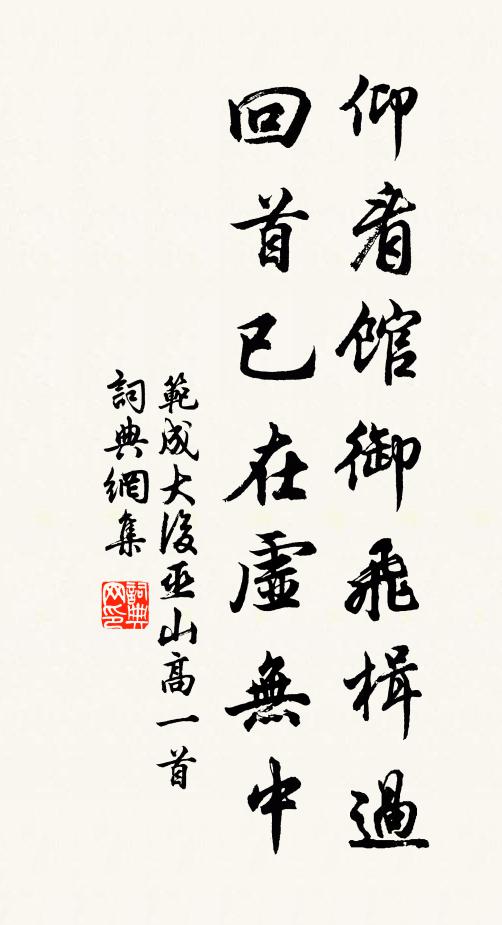 仰看馆御飛楫過
回首已在虛無中
範成大後巫山高一首
詞典網集
詞典网印